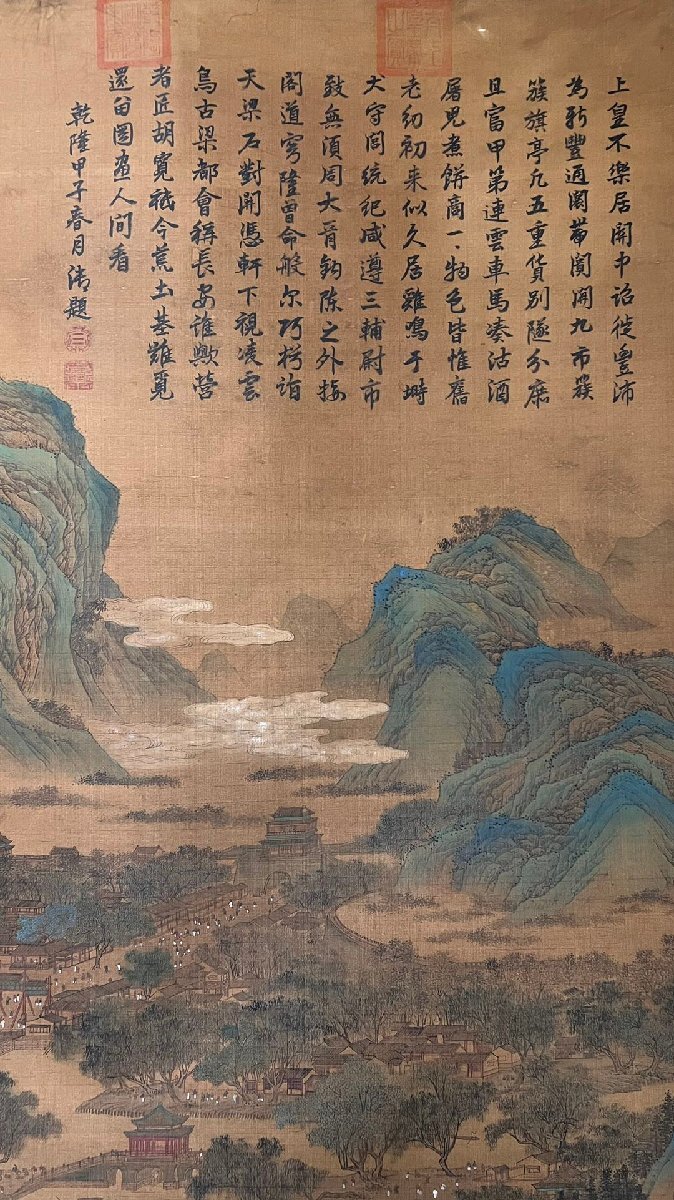 上皇不樂居關中詔徙豐沛
為新豐通闠帶闤開九市叢
簇旗亭凡五重貨別隧分廛
且富甲第連雲車馬湊沽酒
屠兒煮餅商一一物色皆惟舊
老幼初来似久居雞鳴于塒
犬守閭統紀咸遵三輔尉市
致無須周大胥鈎陳之外接
閣道穹隆曾命般尔巧楞詣
天梁石對開憑軒下視凌雲
鳥古梁都會稱長安誰歟營
者匠胡寬祗今荒土基難覓
還留圖畫人間看
乾隆甲子春月御題